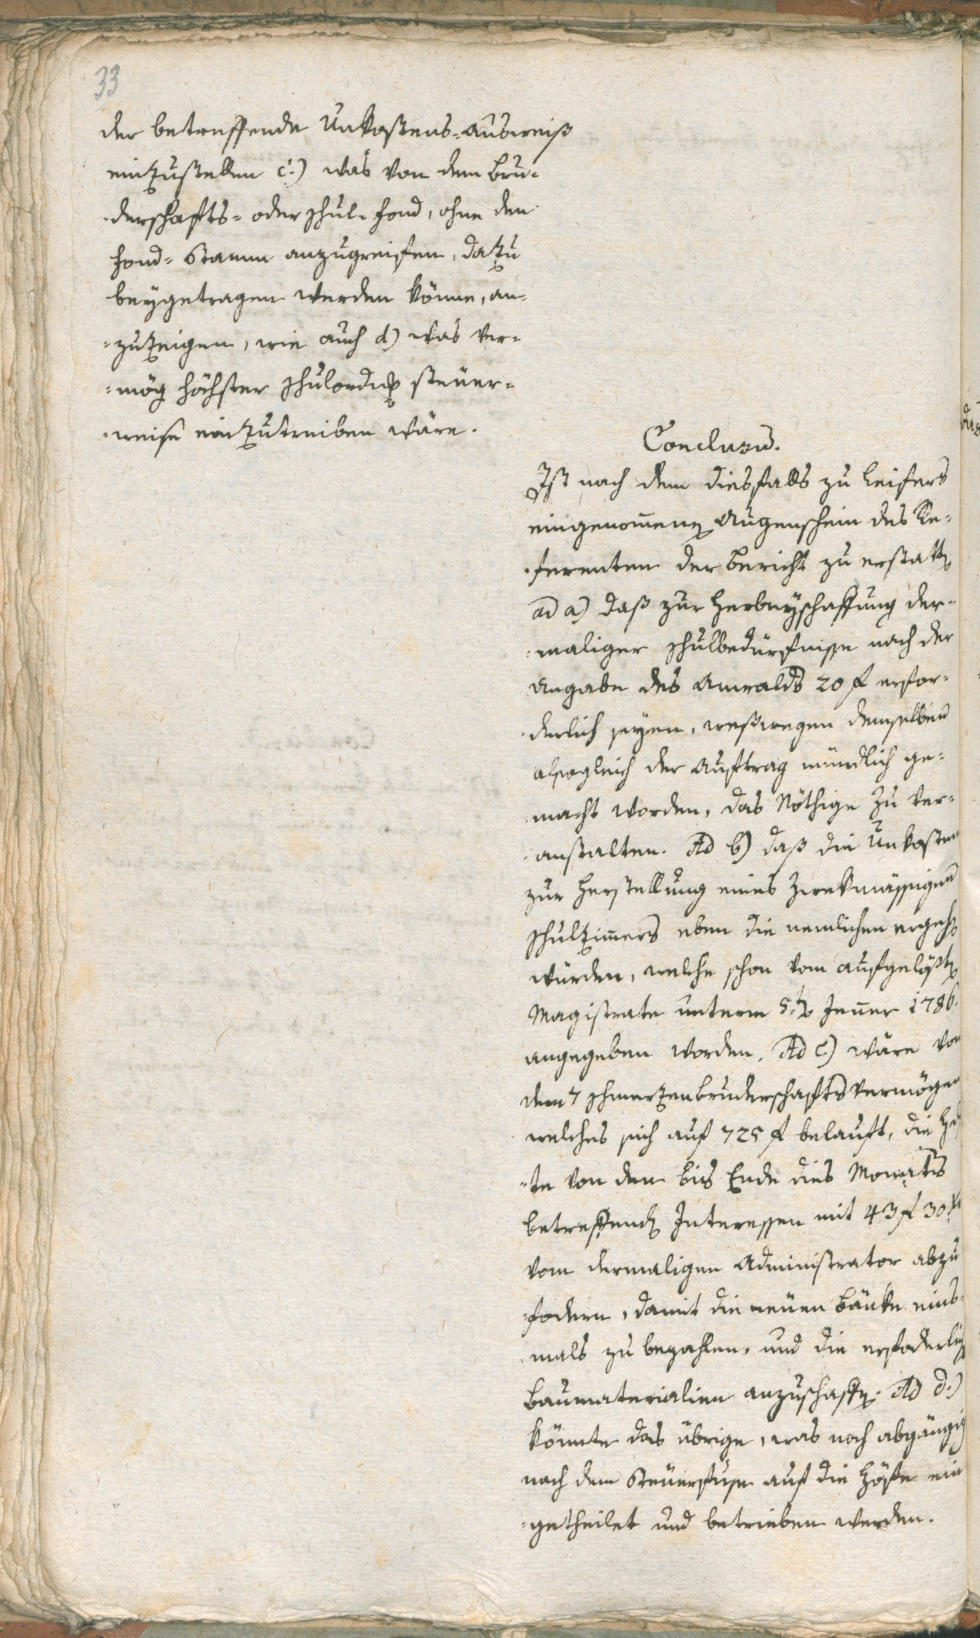 33
der betreffende Unkostens-ausweiß
einzustellen c:) was von dem Bru-
-derschafts- oder schul-fond, ohne den
fond-Stamm anzugreifen, dazu
beygetragen werden könne, an-
-zuzeigen, wie auch d) was ver-
-mög höchster schulordng steuer-
-weise einzutreiben wäre.
Conclusu.
Ist nach dem diesfalls zu Leifers
eingenomenen Augenschein des Re-
-ferenten der bericht zu erstatten
ad a) daß zur herbeyschaffung der-
-maliger schulbedürfnisse nach der
Angabe des Anwalds 20 f erfor-
-derlich seyen, weßwegen demselben
alsogleich der Auftrag mündlich ge-
-macht worden, das Nöthige zu ver-
-anstalten. Ad b) daß die Unkosten
zur herstellung eines zwekmässigen
schulzimers eben die nemlichen
würden, welche schon vom aufgelösten
Magistrate unterm 5. Jenner 1786.
angegeben worden. Ad c) wäre von
dem 7 schmerzenbruderschaftsvermögen
welches sich auf 725 f belauft, die
-te von den bis Ende dies Monats
betreffenden Interessen mit 43 f 30 k
vom dermaligen Administrator abzu
-fodern, damit die neuen bänke eins-
-mals zu bezahlen, und die erfoderlichen
baumaterialien anzuschaffen. Ad d:)
könnte das übrige, was noch abgängig
nach dem Steuerfuße auf die Höfe ein
-getheilet und betrieben werden.